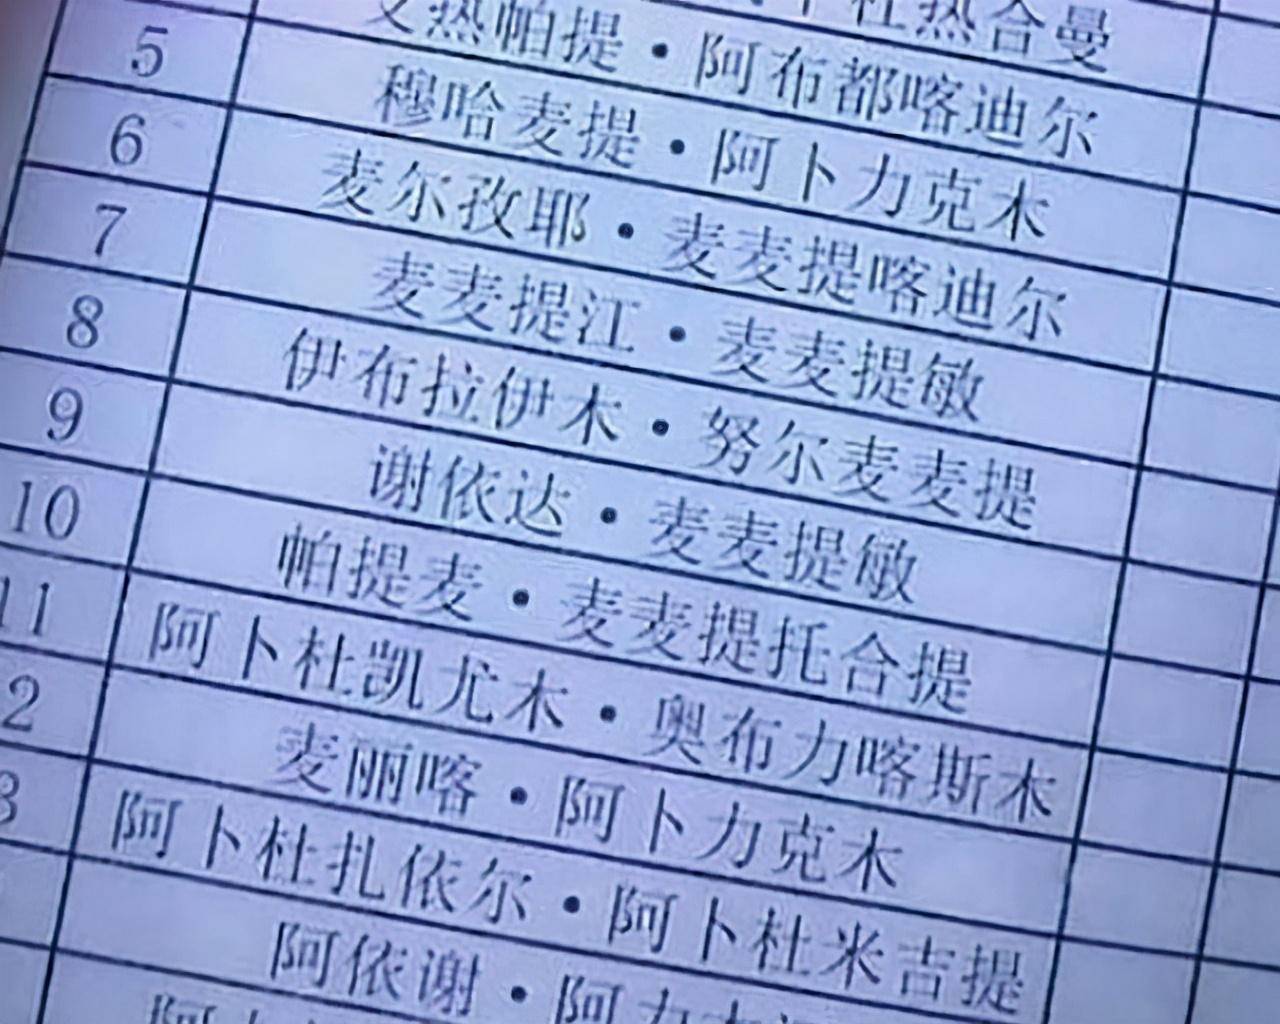 杜热合曼
热帕提·阿布都喀迪尔
5 穆哈麦提·阿卜力克木
6 麦尔孜耶·麦麦提喀迪尔
7 麦麦提江·麦麦提敏
8 伊布拉伊木·努尔麦麦提
9 谢依达·麦麦提敏
10 帕提麦·麦麦提托合提
11 阿卜杜凯尤木·奥布力喀斯木
2 麦丽喀·阿卜力克木
3 阿卜杜扎依尔·阿卜杜米吉提
阿依谢·阿